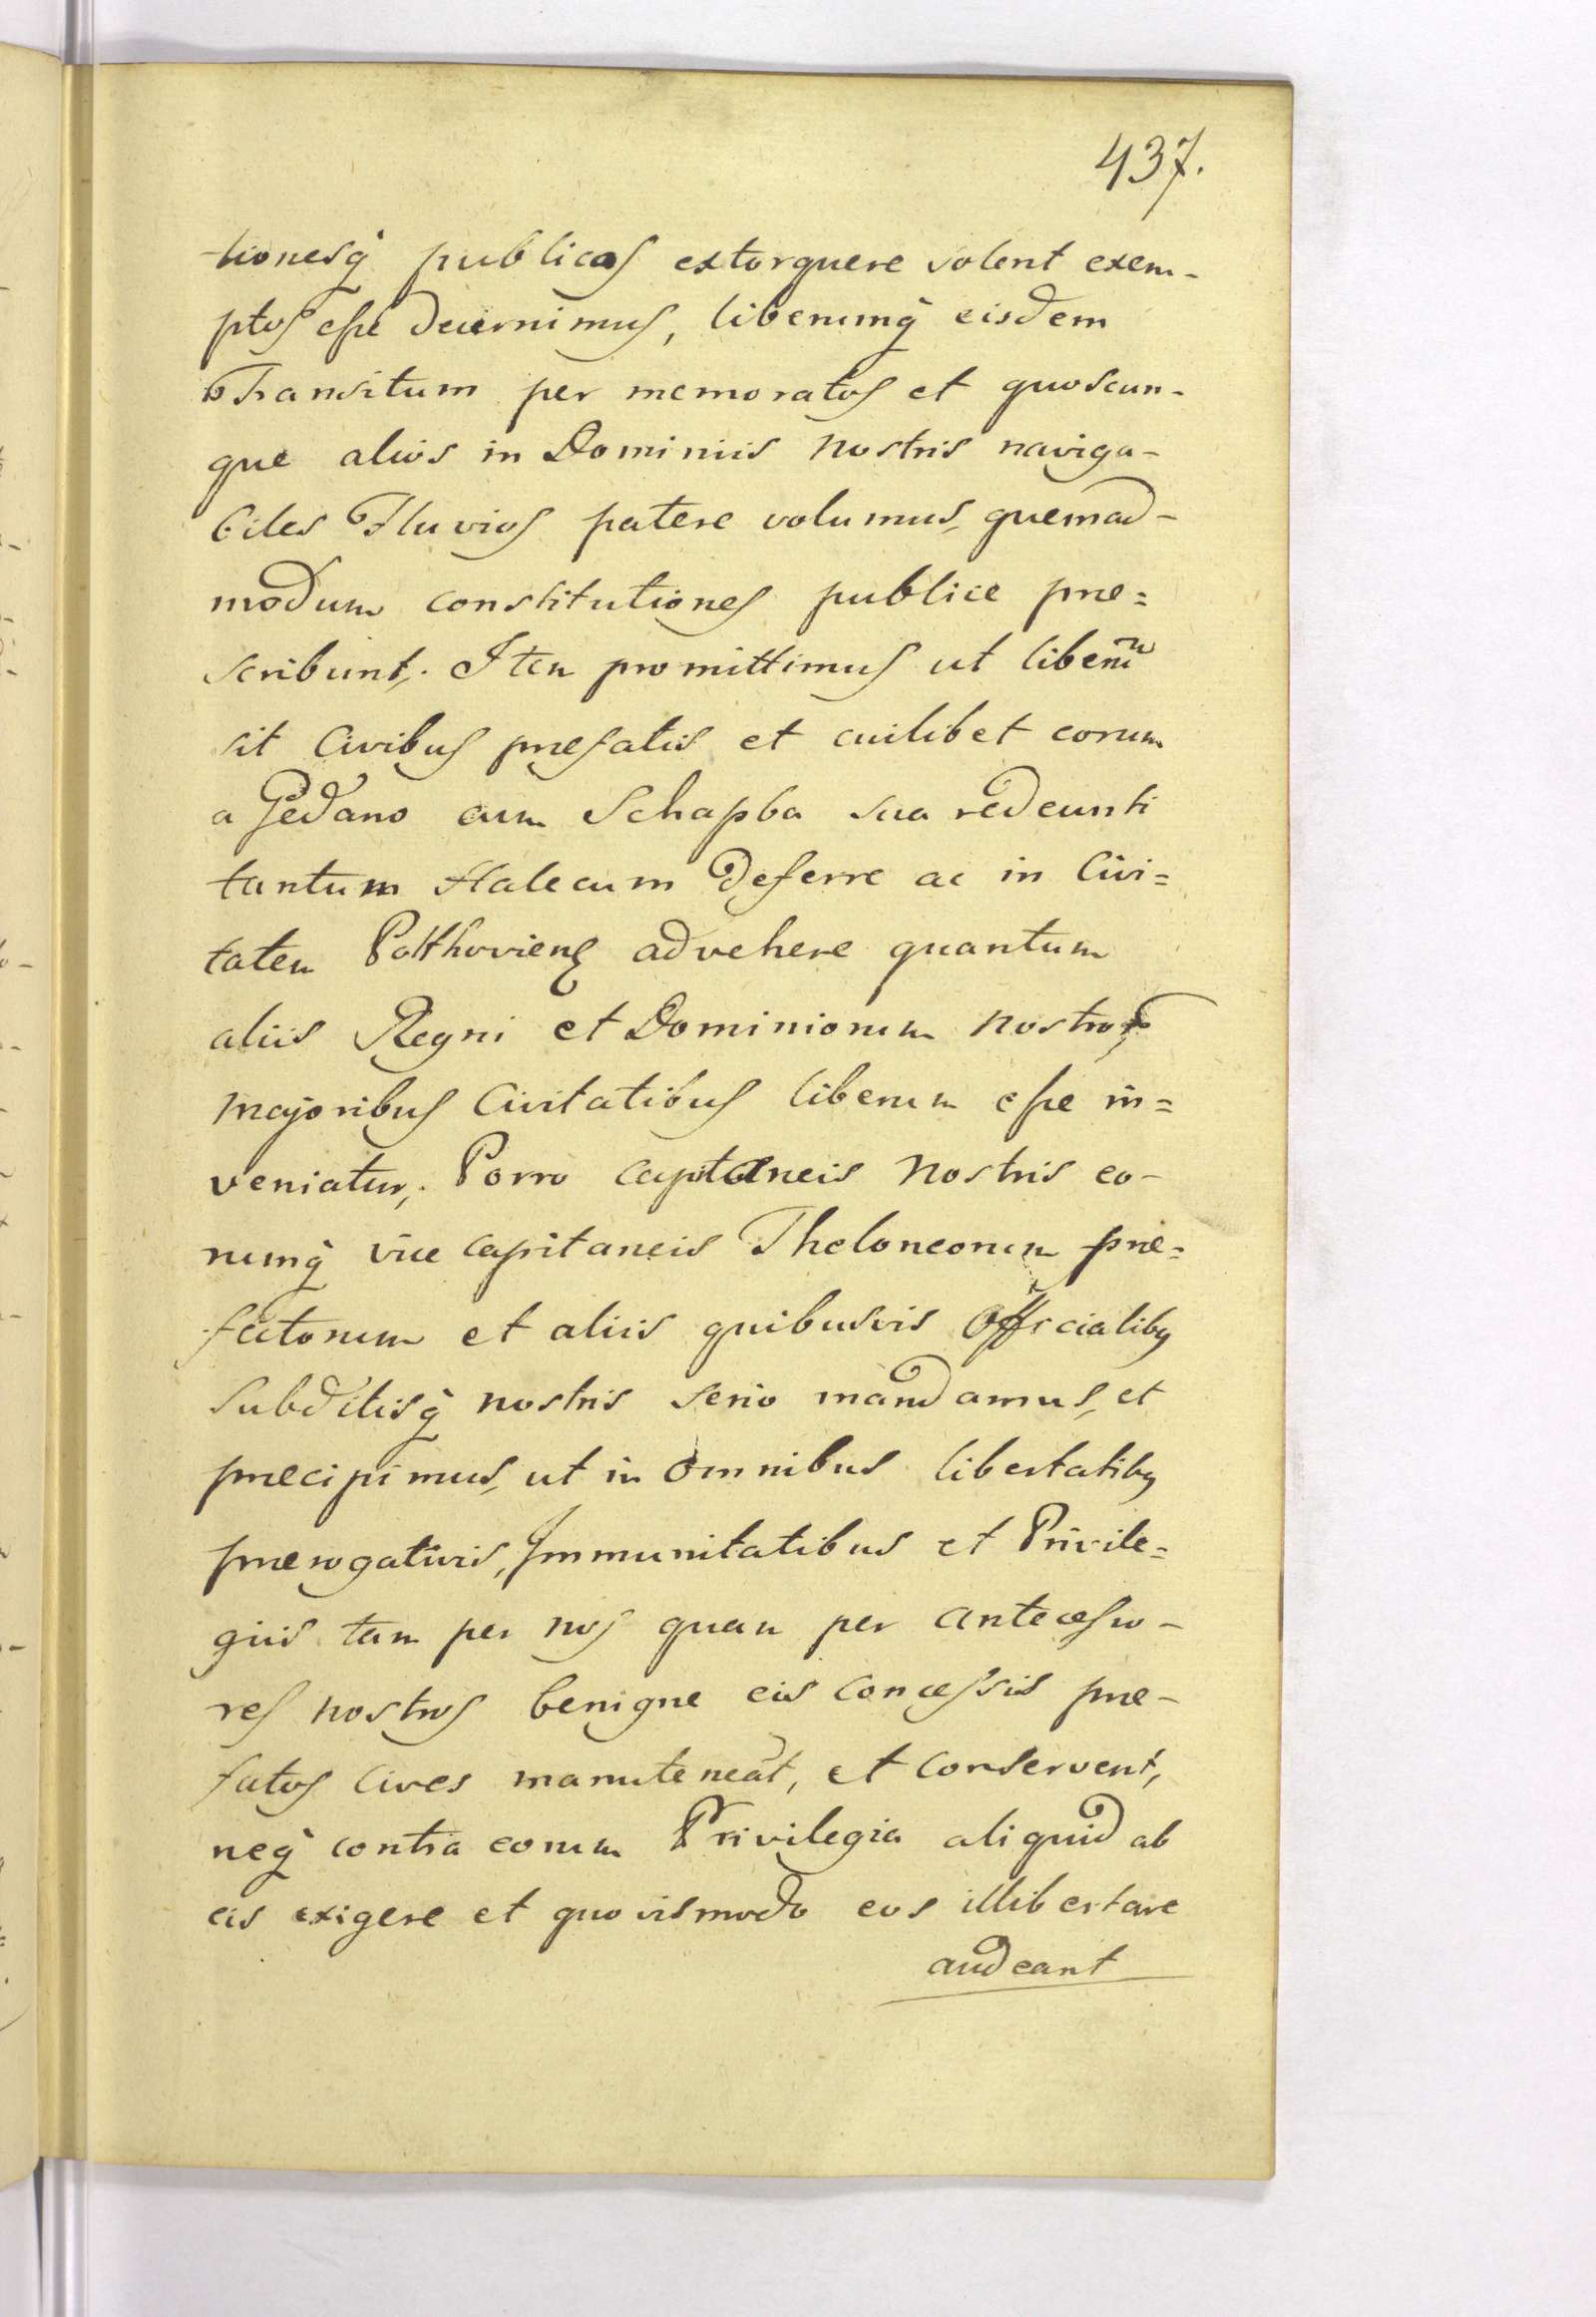 437.
tionesq́ publicas extorquere solent exem-
ptos esse decernimus, liberumq́ eisdem
Transitum per memoratos et quoscun-
que alios in Dominiis nostris naviga-
biles Fluvios patere volumus, quemad-
modum constitutiones publice pre=
scribunt. Item promittimus ut liberũ
sit Civibus prefatis et cuilibet eorum
a Gedano cum Schapba sua redeunti
tantum Halecum deferre ac in Civi=
tatem advehere quantum
aliis Regni et Dominiorum nostroꝝ
majoribus Civitatibus liberum esse in=
veniatur. Porro Capitaneis nostris eo-
rumq́ vice capitaneis Theloneorum pre=
fatorum et aliis quibusvis Officialibꝯ
Subditisq́ nostris serio mandamus, et
precipimus, ut in omnibus libertatibꝯ
prerogativis, Immunitatibus et Privile=
giis tam per nos quam per antecesso-
res nostros benigne eis concessis pre-
fatos Cives manuteneãt, et conservent,
neq́ contra eorum Privilegia aliquid ab
eis exigere et quovismodo eos illibertare
audeant